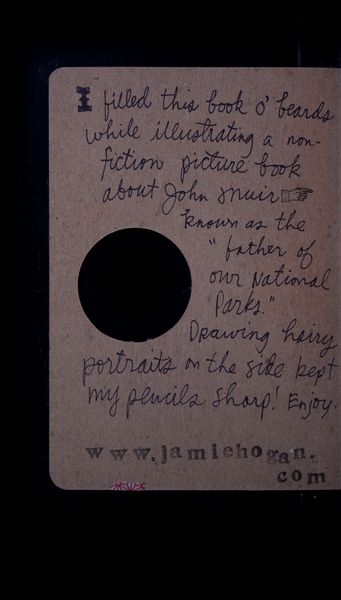 I filled this book o' beards
while illustrating a non-
fiction picture book
about John Muir
known as the
"father of
our National
Parks."
Drawing hairy
portraits on the side kept
my pencils sharp! Enjoy.
www.jamiehogan.
com